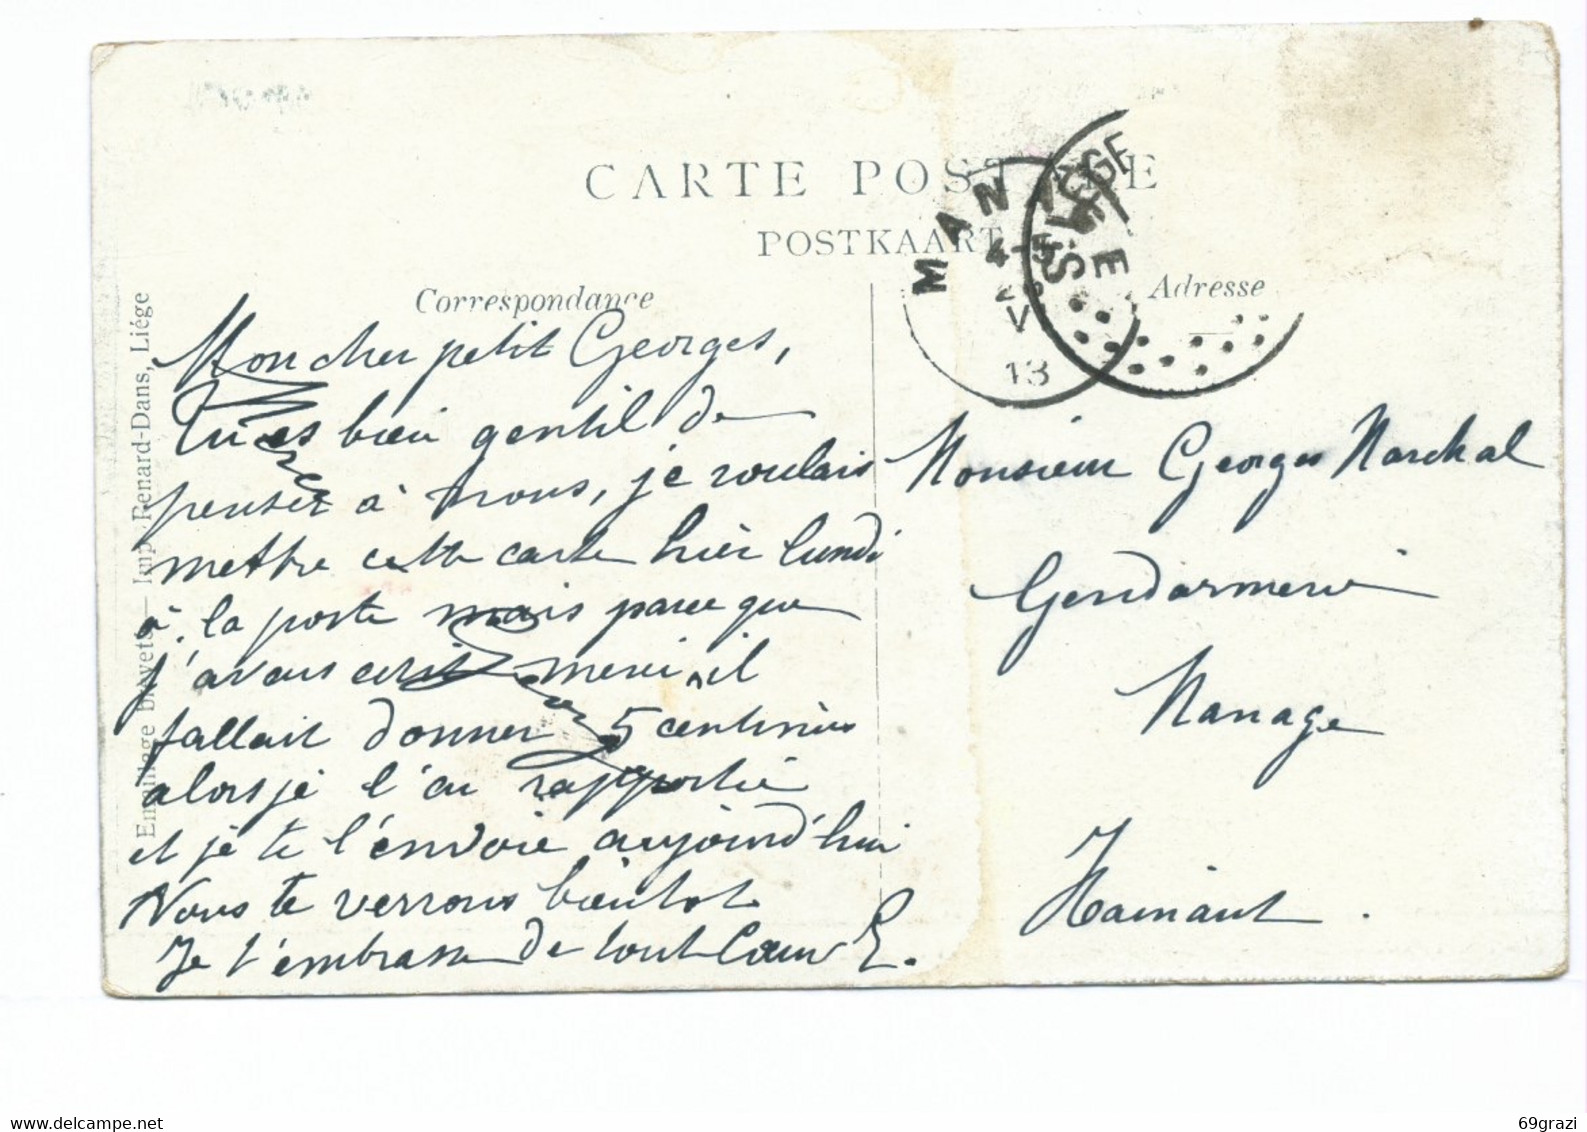 CARTE POSTALE
POSTKAART
Correspondance
Adresse
MANAGE
4-5
26
V
13
LIÈGE
Emaillage brevets — Imp. Renard-Dans, Liége
Mon cher petit Georges,
Tu es bien gentil de
penser à nous, je voulais
mettre cette carte hier lundi
à la poste mais parce que
j'avais écrit merci, il
fallait donner 5 centimes
alors je l'ai rapportée
et je te l'envoie aujourd'hui
Nous te verrons bientôt
Je t'embrasse de tout Cœur E.
Monsieur Georges Marchal
Gendarmerie
Manage
Hainaut.
69grazi